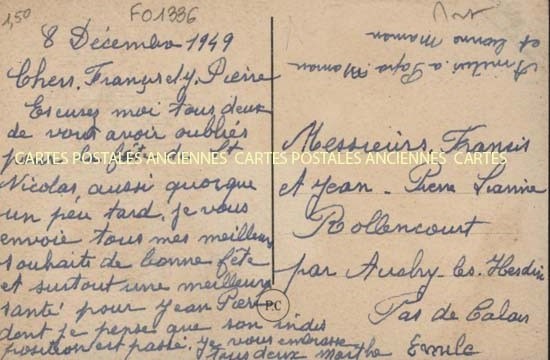 1,50
FO1336
8 Décembre 1949
Chers. Français et J. Pierre
Excusez moi tous deux
de vous avoir oubliés
pour la fête de St
Nicolas, aussi quoique
un peu tard, je vous
envoie tous mes meilleurs
souhaits de bonne fête
et surtout une meilleure
santé pour Jean Pierre
dont je pense que son indis
position est passé. je vous embrasse
tous deux marthe Emile
Amitiés a Papa Maman
et bonne Maman
Messieurs. Francis
et Jean - Pierre
Rollencourt
par Auchy-les-Hesdin
Pas de Calais
P.C
CARTES POSTALES ANCIENNES CARTES POSTALES ANCIENNES CARTES